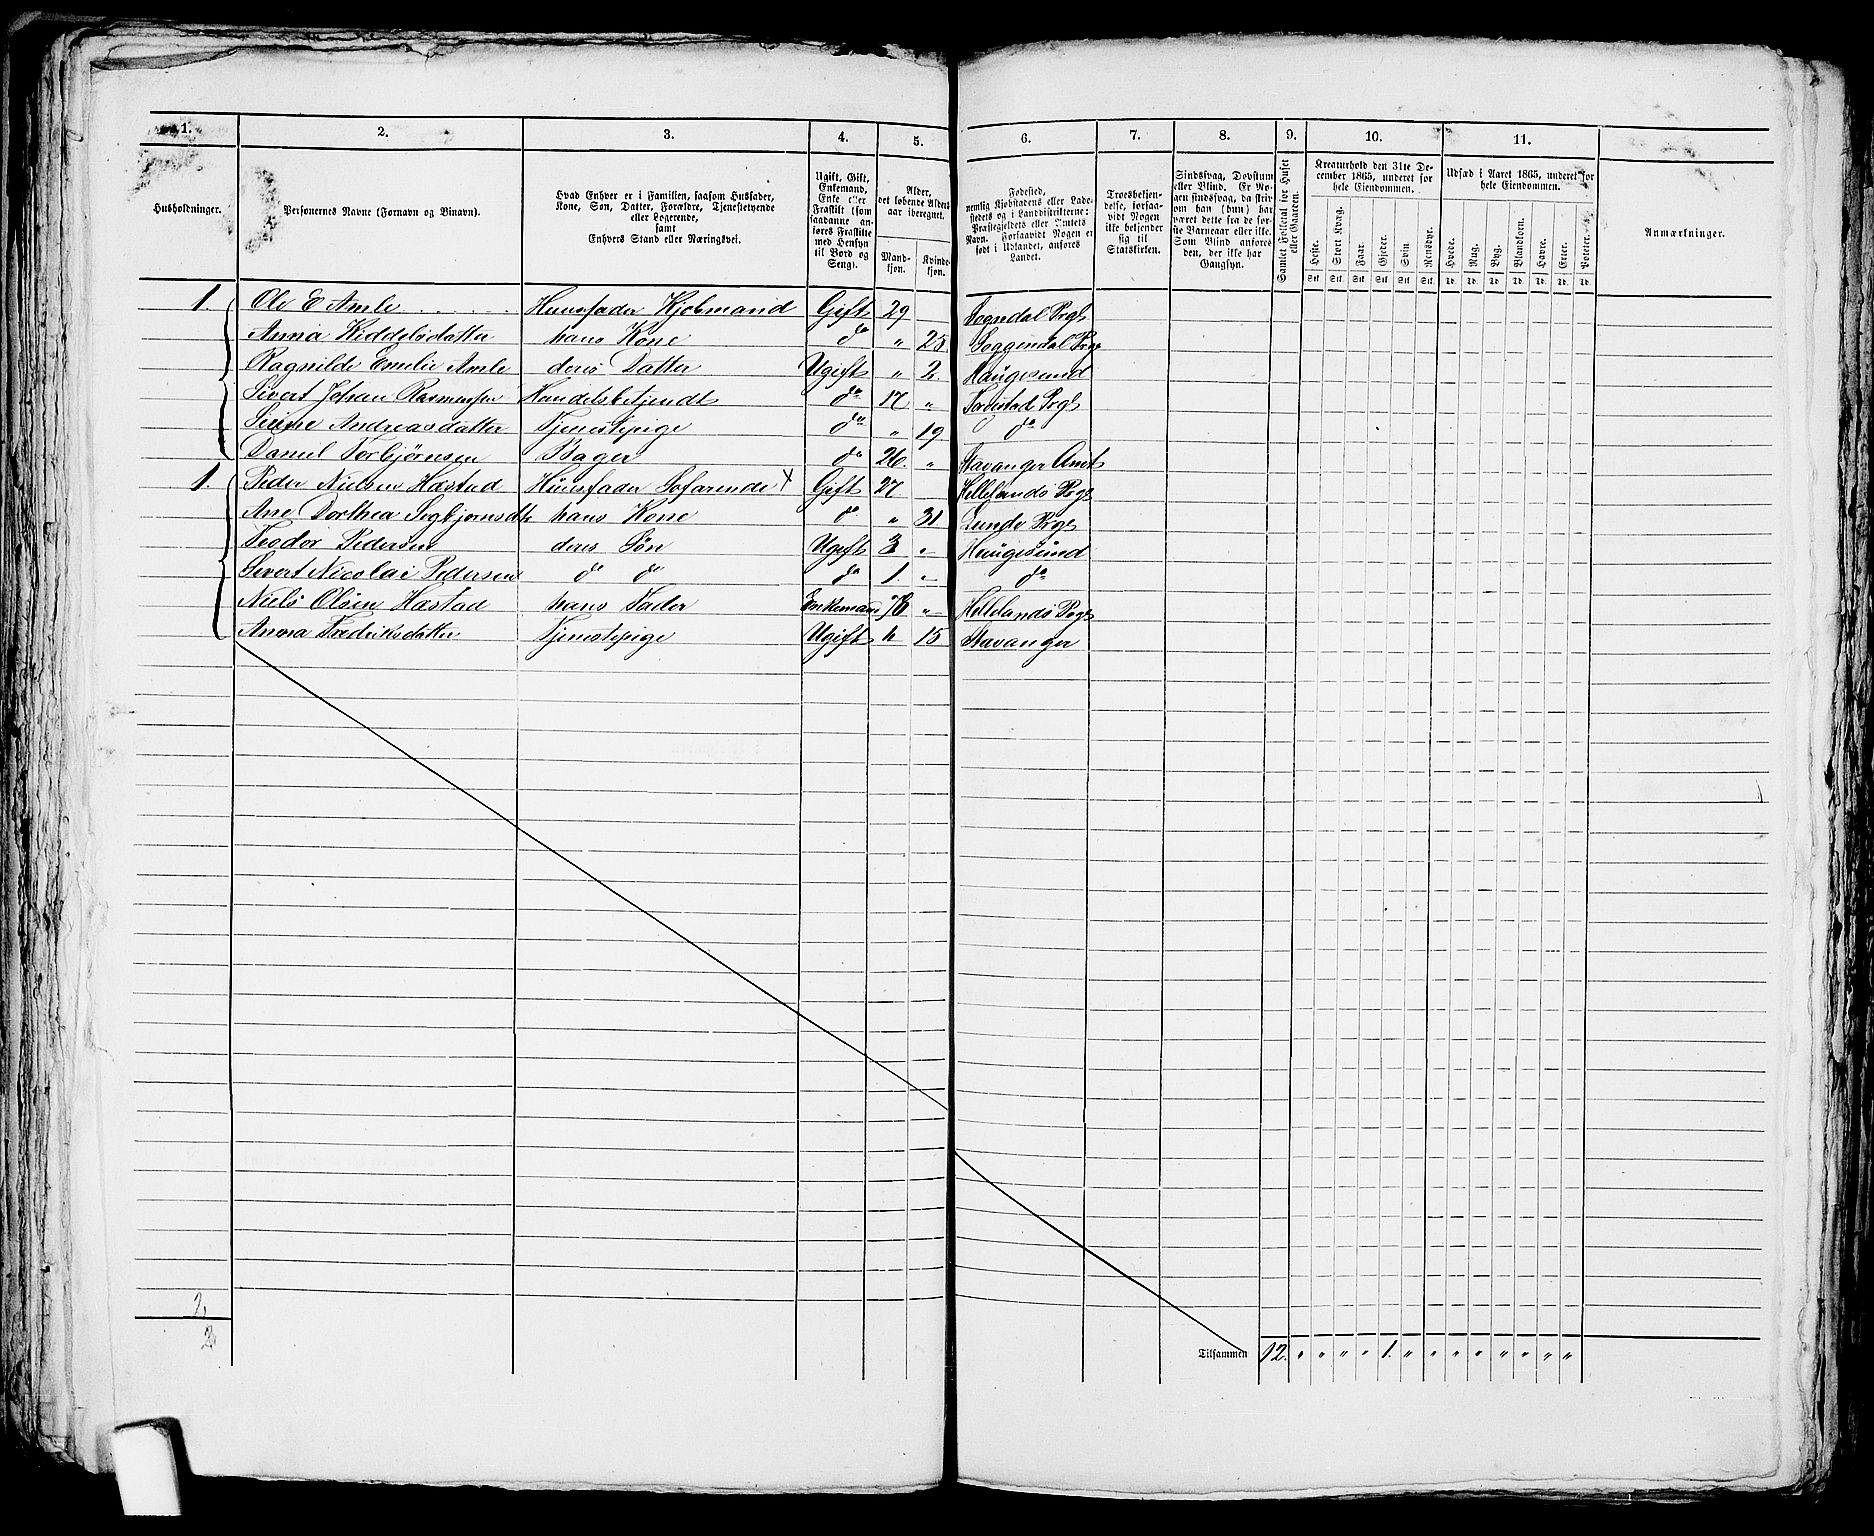 1. 2. 3. 4. 5. 6. 7. 8. 9. 10. 11.
Husholdninger.
Personernes Navne (Fornavn og Binavn).
Hvad Enhver er i Familien, saasom Husfader,
Kone, Søn, Datter, Forældre, Tjenestetyende
eller Logerende,
samt
Enhvers Stand eller Næringsvei.
Ugift, Gift,
Enkemand,
Enke eller
Fraskilt (som
saadanne an-
føres Fraskilte
med Hensyn
til Bord og
Seng).
Alder,
det løbende Alders-
aar iberegnet.
Mand-
kjøn.
Kvinde-
kjøn.
Fødested,
nemlig Kjøbstadens eller Lade-
stedets og i Landdistrikterne:
Præstegjeldets eller Amtets
Navn. Forsaavidt Nogen er
født i Udlandet, anføres
Landet.
Troesbekjen-
delse, forsaa-
vidt Nogen
ikke bekjender
sig til
Statskirken.
Sindssvag, Døvstum
eller Blind. Er No-
gen sindssvag, da skriv
om han (hun) har
været dette fra de før-
ste Barneaar eller ikke.
Som Blind anføres
den, der ikke har
Gangsyn.
Samlet Folketal for Huset
eller Gaarden.
Kreaturhold den 31te De-
cember 1865, underet for
hele Eiendommen.
Heste. Stort Kvæg. Faar. Gjeder. Svin. Rensdyr.
Stk. Stk. Stk. Stk. Stk. Stk.
Udsæd i Aaret 1865, underet for
hele Eiendommen.
Hvede. Rug. Byg. Blandkorn. Havre. Erter. Poteter.
Td. Td. Td. Td. Td. Td. Td.
Anmærkninger.
1. Ole E Amle Huusfader Kjøbmand Gift 29 Sogndal Prgj
Anna Kiddelsdatter hans Kone do " 25 Soggendal Prgj
Ragnilde Emilie Amle deres Datter Ugift " 2. Haugesund
Sivert Johan Rasmussen Handelsbetjendt do 17 " Torvestad Prgj
Serine Andreasdatter Tjenestepige do " 19 do
Daniel Torbjørnsen Bager do 26. " Stavanger Amt
1. Peder Nielsen Hæstad Huusfader Søfarende X Gift 27 Hellelands Prgj
Ane Dorthea Segbjørnsdt hans Kone do " 31 Lunde Prgj
Teodor Pedersen deres Søn Ugift 3 " Haugesund
Sivert Nicolai Pedersen do do do 1. " do
Niels Olsen Hæstad hans Fader Enkemand 76 " Hellelands Prgj
Anna Fredriksdatter Tjenestepige Ugift " 15 Stavanger
2
2
Tilsammen 12. " " " " 1. " " " " " " " "